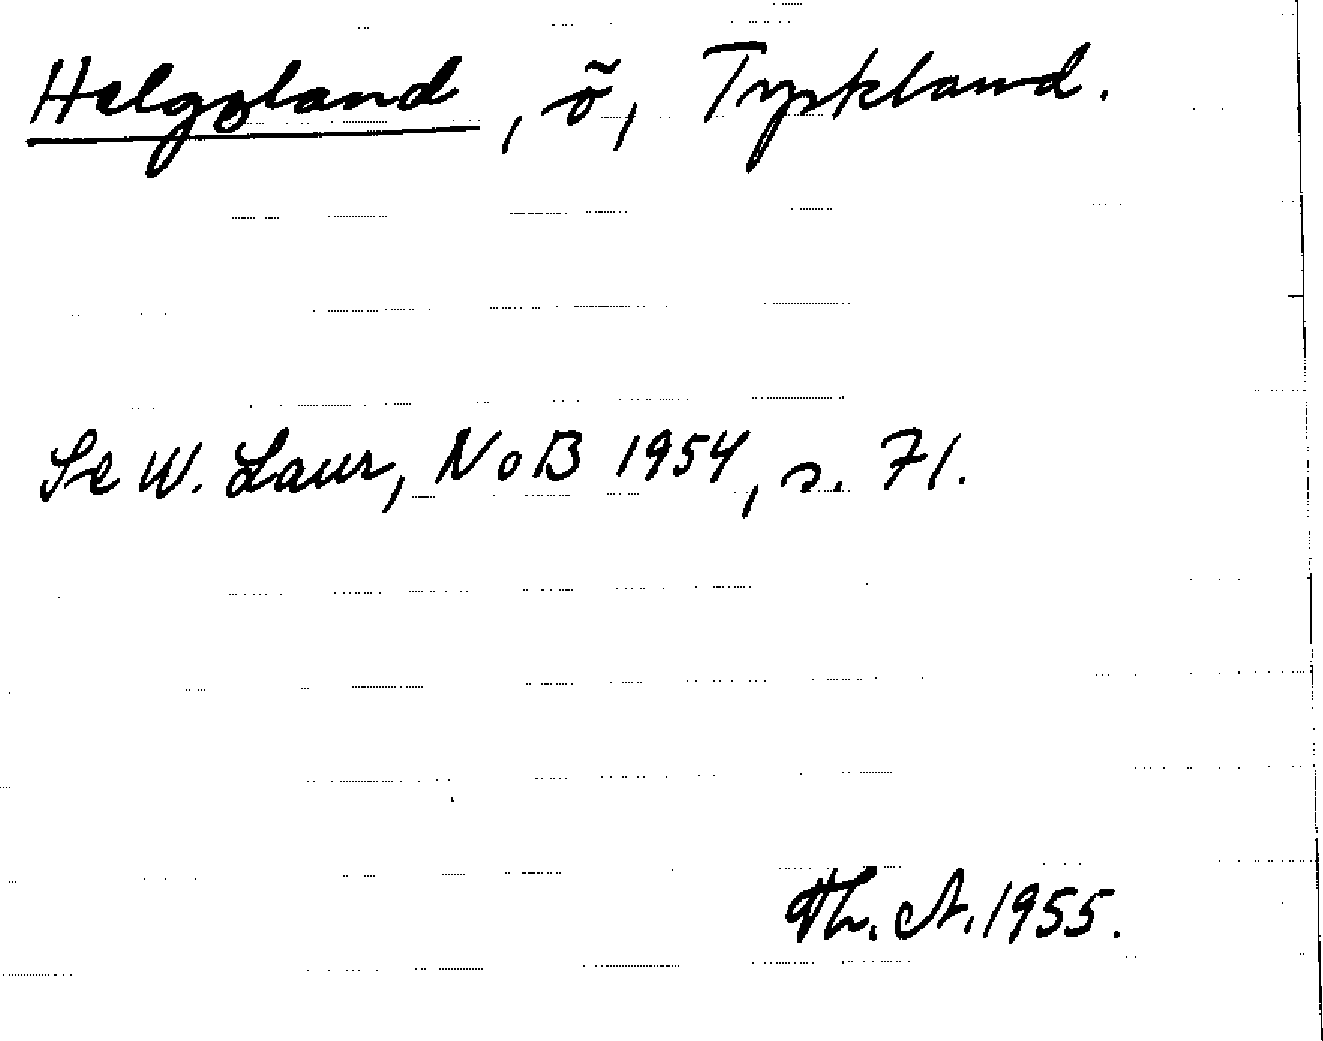 Helgoland, ö, Tyskland.
Se W. Laur, NoB 1954, s. 71.
Th. A. 1955.